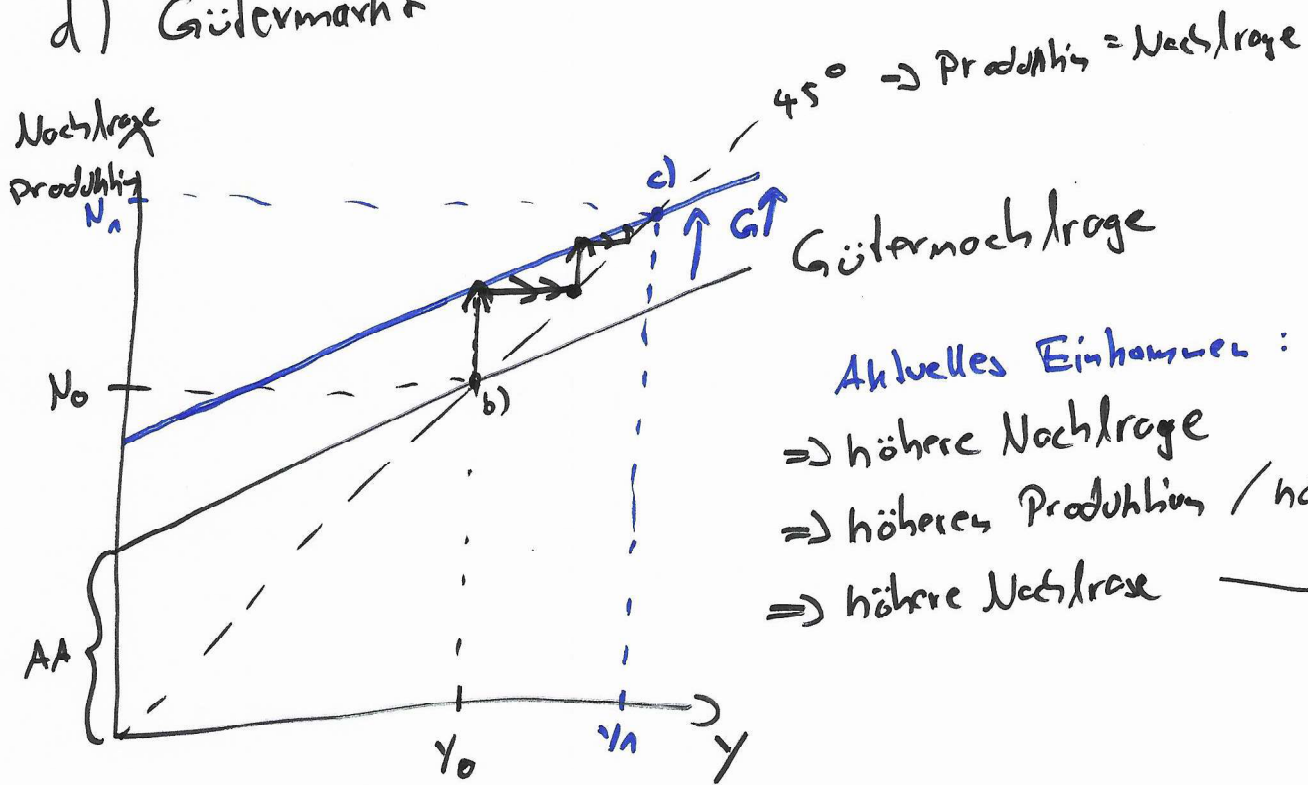 d) Gütermarkt
45° => Produktion = Nachfrage
Nachfrage
Produktion
N1
c)
G↑
Güternachfrage
N0
b)
Aktuelles Einkommen :
=> höhere Nachfrage
=> höheren Produktion /
=> höhere Nachfrage
AA
Y0
Y1
Y